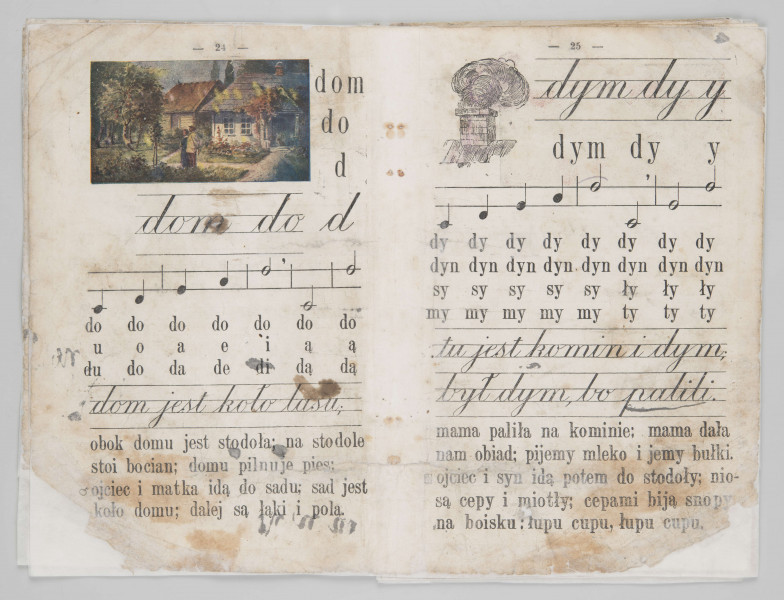 — 24 —
dom
do
d
dom do d
do do do do do do do
u o a e i ą ą
du do da de di dą dą
dom jest koło lasu;
obok domu jest stodoła; na stodole
stoi bocian; domu pilnuje pies;
ojciec i matka idą do sadu; sad jest
koło domu; dalej są łąki i pola.
— 25 —
dym dy y
dym dy y
dy dy dy dy dy dy dy dy
dyn dyn dyn dyn dyn dyn dyn dyn
sy sy sy sy sy ły ły ły
my my my my my ty ty ty
tu jest komin i dym;
był dym, bo palili.
mama paliła na kominie; mama dała
nam obiad; pijemy mleko i jemy bułki.
ojciec i syn idą potem do stodoły; nio-
są cepy i miotły; cepami biją snopy
na boisku: łupu cupu, łupu cupu.